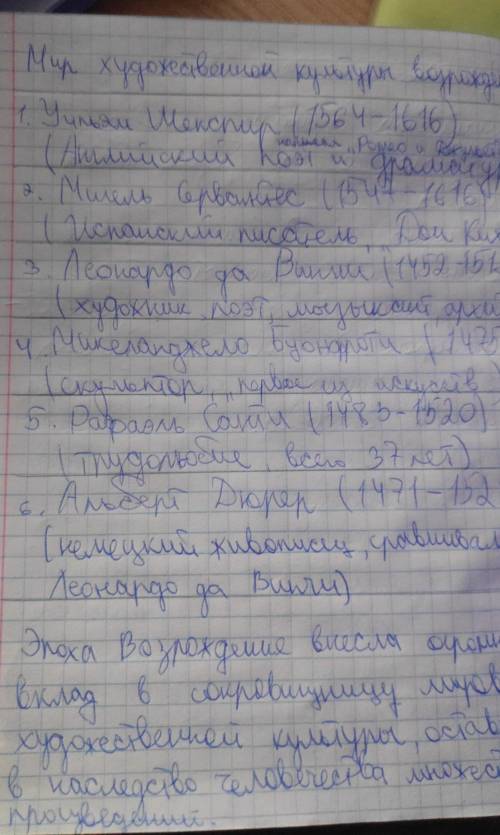 Мир художественной культуры возрожде
1. Уильям Шекспир (1564-1616)
написал „Ромео и
(Английский поэт и драматур
2. Мигель Сервантес (1547-1616)
(Испанский писатель „Дон Ких
3. Леонардо да Винчи (1452-151
(художник, поэт, музыкант, архи
4. Микеланджело Буонароти (1475
(скульптор, „первое из искусств
5. Рафаэль Санти (1483-1520)
(трудолюбие, всего 37 лет)
6. Альберт Дюрер (1471-152
(немецкий живописец, сравнивал
Леонардо да Винчи)
Эпоха Возрождение внесла огром
вклад в сокровищницу миров
художественной культуры, остав
в наследство человечества множест
произведений.